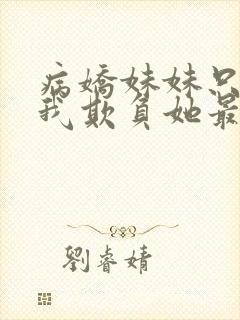 病嬌妹妹只
我欺負她最
劉睿婧